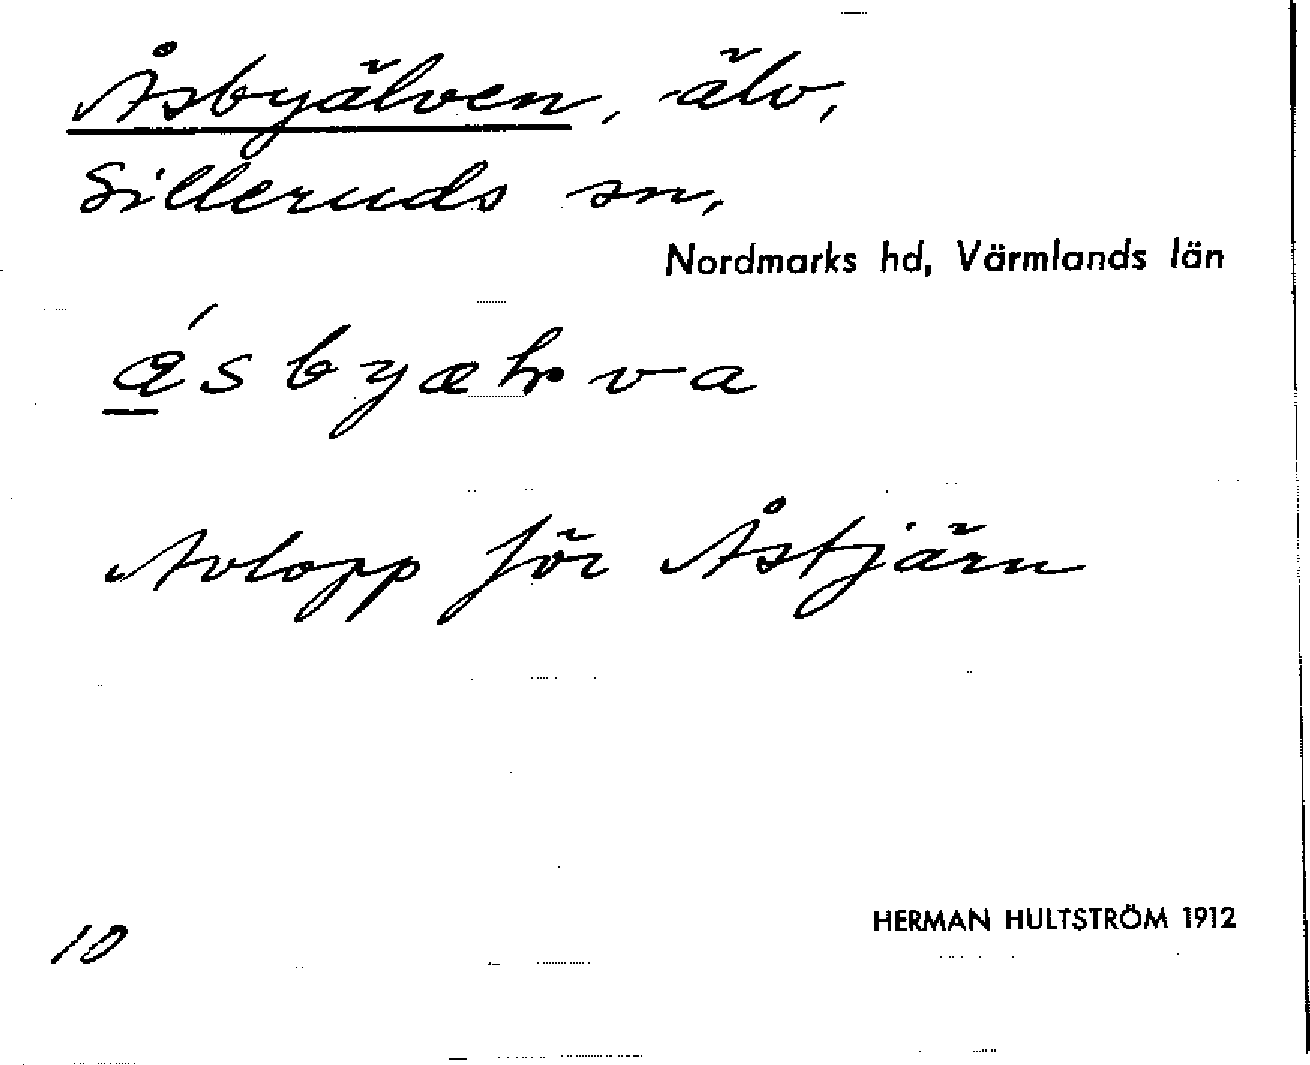 Åsbyälven, älv,
Silleruds sn,
Nordmarks hd, Värmlands län
Avlopp för Åstjärn
HERMAN HULTSTRÖM 1912
10